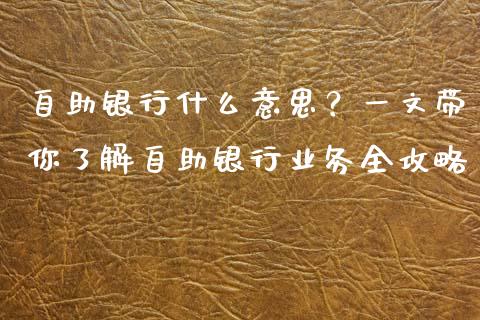 自助银行什么意思？一文带
你了解自助银行业务全攻略